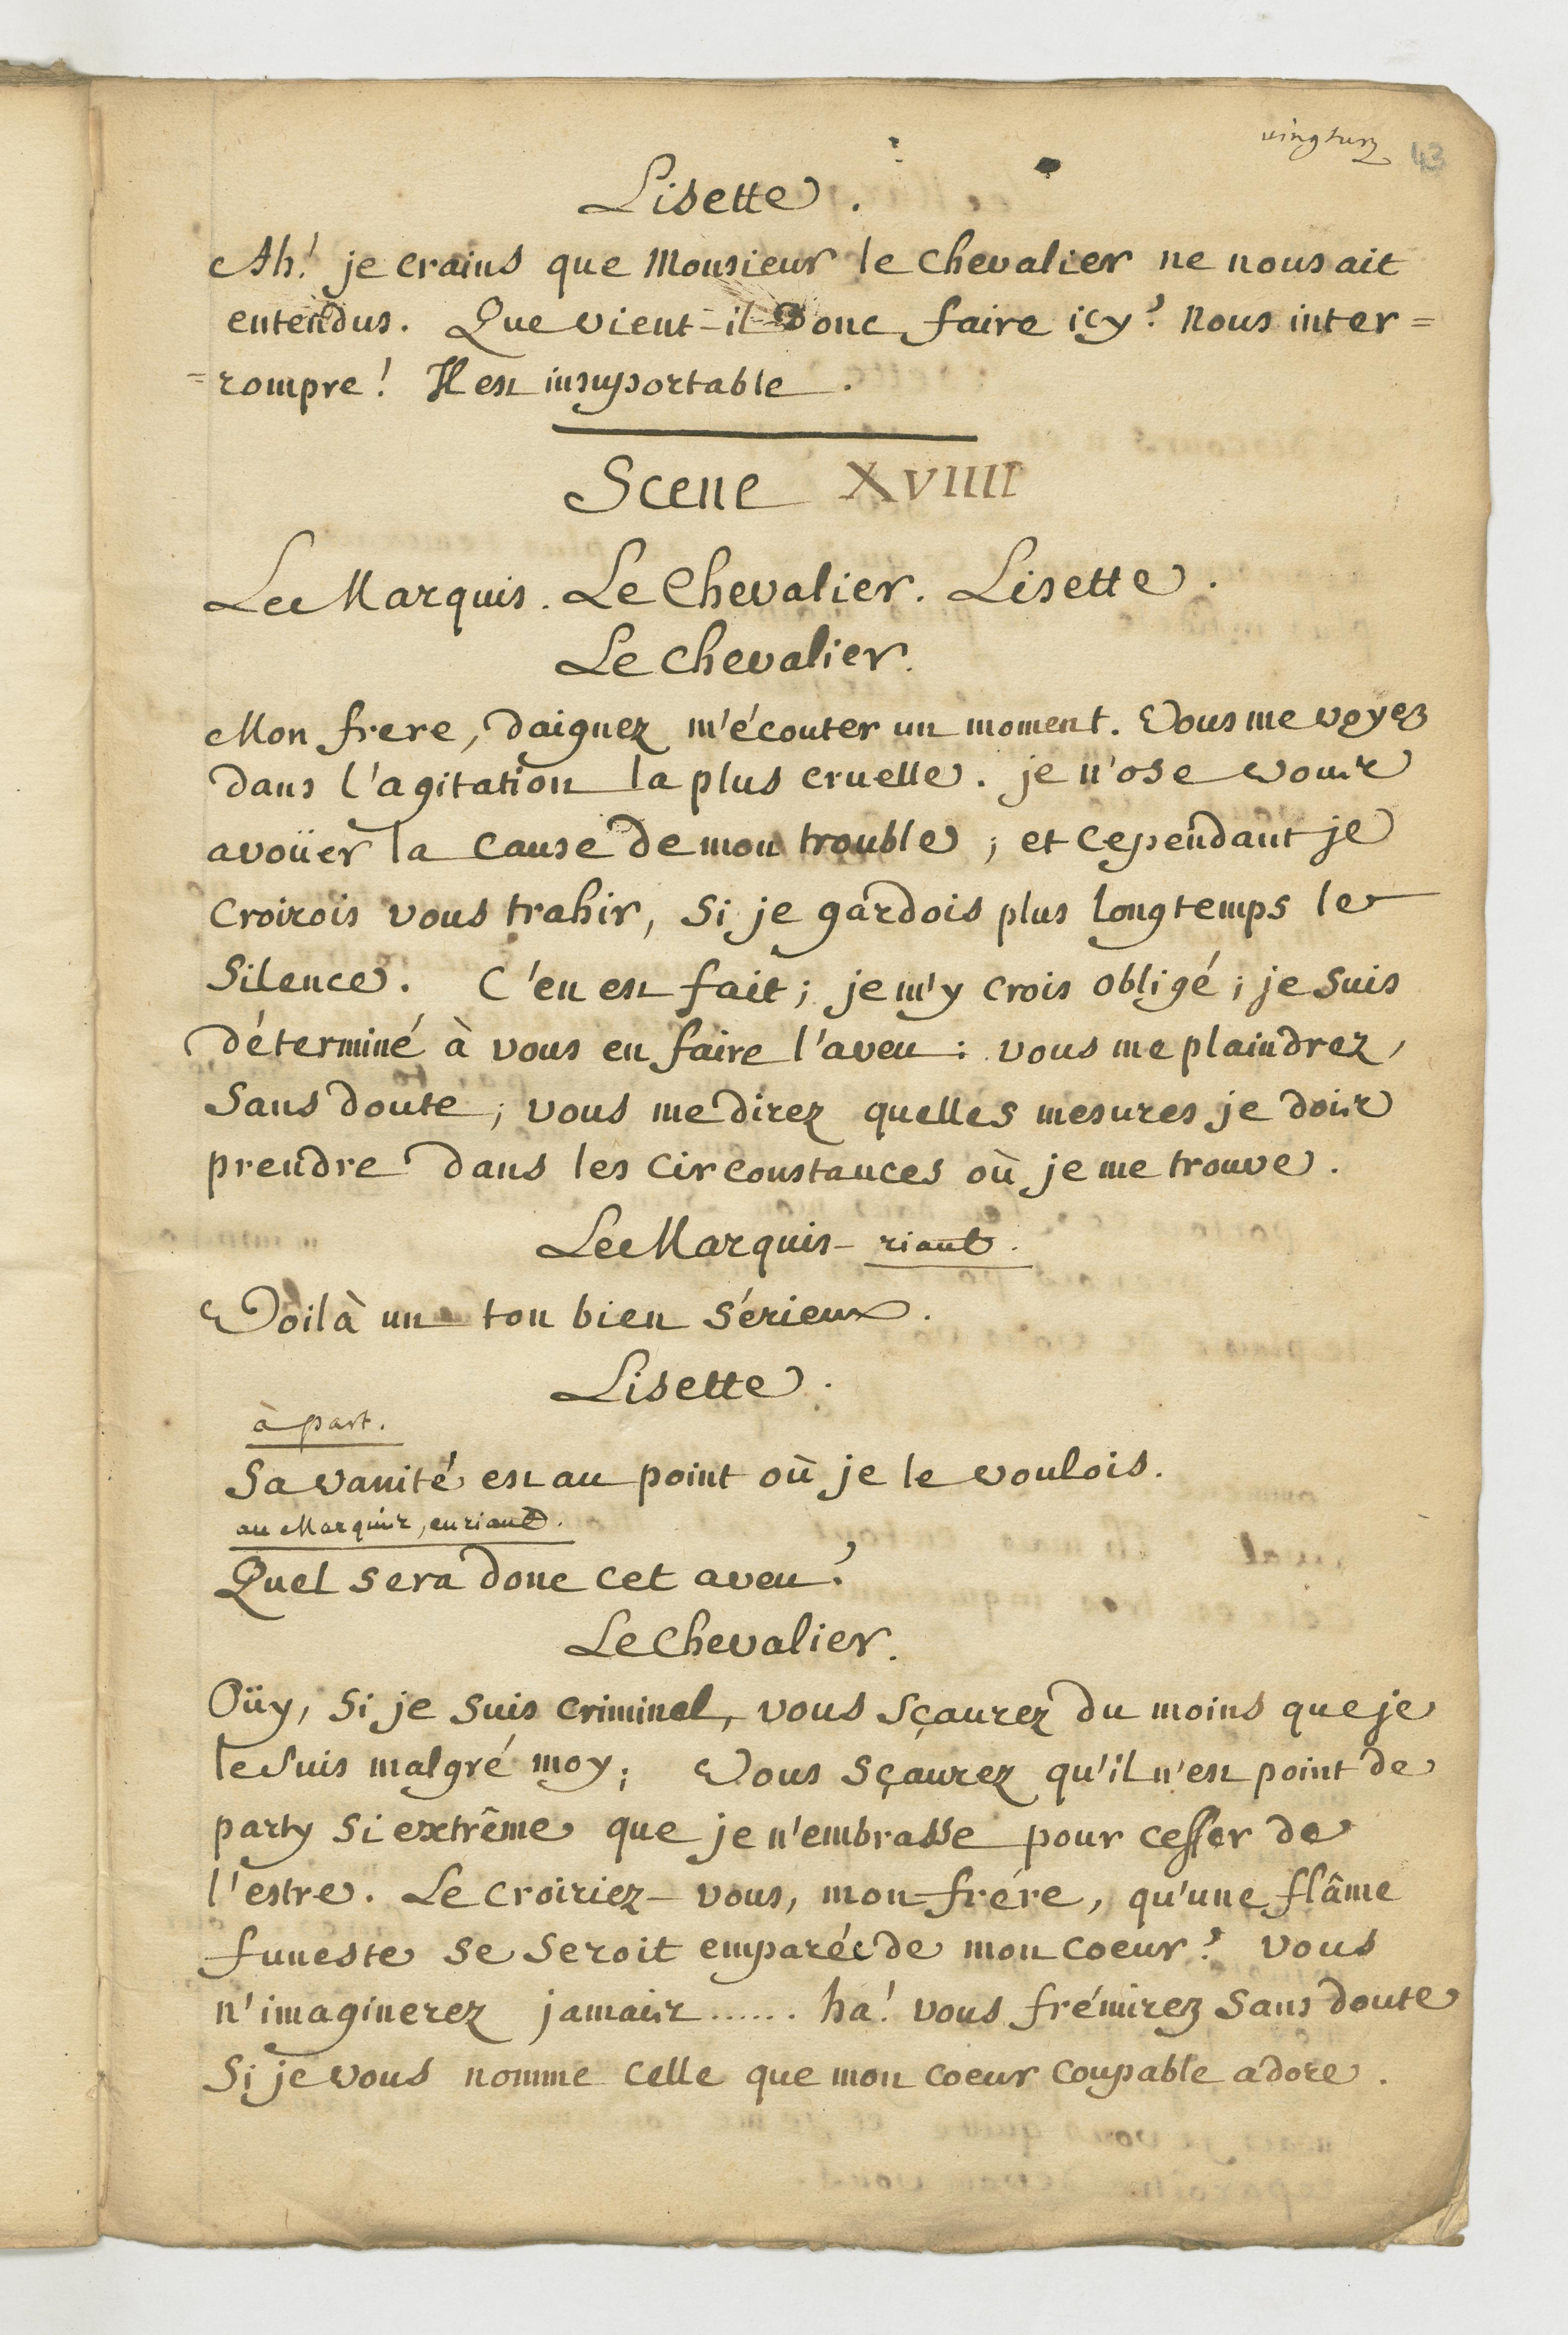 vingtun 43
Lisette.
Ah! je crains que Monsieur le Chevalier ne nous ait
entendus. Que vient-il donc faire icy? Nous inter=
=rompre! Il est insuportable.
Scene XVIIII
Le Marquis. Le Chevalier. Lisette.
Le Chevalier.
Mon frere, daignez m'écouter un moment. Vous me voyez
dans l'agitation la plus cruelle. je n'ose vous
avoüer la cause de mon trouble; et cependant je
croirois vous trahir, si je gardois plus longtemps le
silence. C'en est fait; je m'y crois obligé; je suis
déterminé à vous en faire l'aveu: vous me plaindrez,
sans doute; vous me direz quelles mesures je dois
prendre dans les circonstances où je me trouve.
Le Marquis - riant.
Voilà un ton bien sérieux.
Lisette.
à part.
Sa vanité est au point où je le voulois.
au Marquis, en riant.
Quel sera donc cet aveu?
Le Chevalier.
Oüy, si je suis criminel, vous sçaurez du moins que je
le suis malgré moy; Vous sçaurez qu'il n'est point de
party si extrême que je n'embrasse pour cesser de
l'estre. Le croiriez-vous, mon frére, qu'une flâme
funeste se seroit emparée de mon coeur? vous
n'imaginerez jamais ...... ha! vous frémirez sans doute
si je vous nomme celle que mon coeur coupable adore.